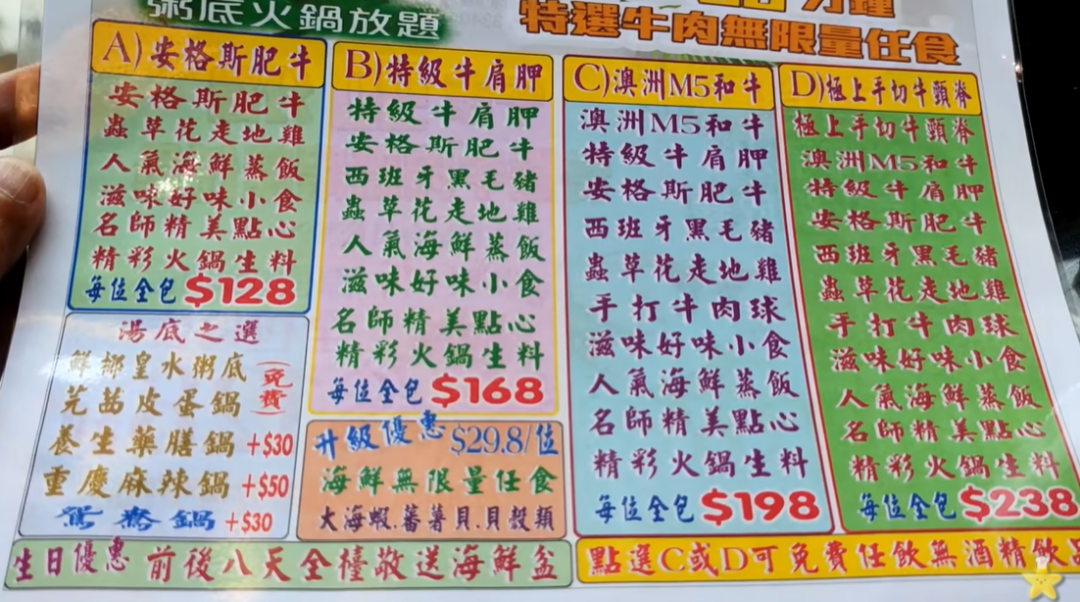 粥底火鍋放題
特選牛肉無限量任食
A)安格斯肥牛
安格斯肥牛
蟲草花走地雞
人氣海鮮蒸飯
滋味好味小食
名師精美點心
精彩火鍋生料
每位全包$128
湯底之選
鮮鄉皇水粥底
芫茜皮蛋鍋
(免費)
養生藥膳鍋+$30
重慶麻辣鍋+$50
鴛鴦鍋+$30
B)特級牛肩胛
特級牛肩胛
安格斯肥牛
西班牙黑毛豬
蟲草花走地雞
人氣海鮮蒸飯
滋味好味小食
名師精美點心
精彩火鍋生料
每位全包$168
升級優惠$29.8/位
海鮮無限量任食
大海蝦.蕃薯貝.貝殼類
C)澳洲M5和牛
澳洲M5和牛
特級牛肩胛
安格斯肥牛
西班牙黑毛豬
蟲草花走地雞
手打牛肉球
滋味好味小食
人氣海鮮蒸飯
名師精美點心
精彩火鍋生料
每位全包$198
D)極上手切牛頸脊
極上手切牛頸脊
澳洲M5和牛
特級牛肩胛
安格斯肥牛
西班牙黑毛豬
蟲草花走地雞
手打牛肉球
滋味好味小食
人氣海鮮蒸飯
名師精美點心
精彩火鍋生料
每位全包$238
生日優惠 前後八天全檯敬送海鮮盆
點選C或D可免費任飲無酒精飲品